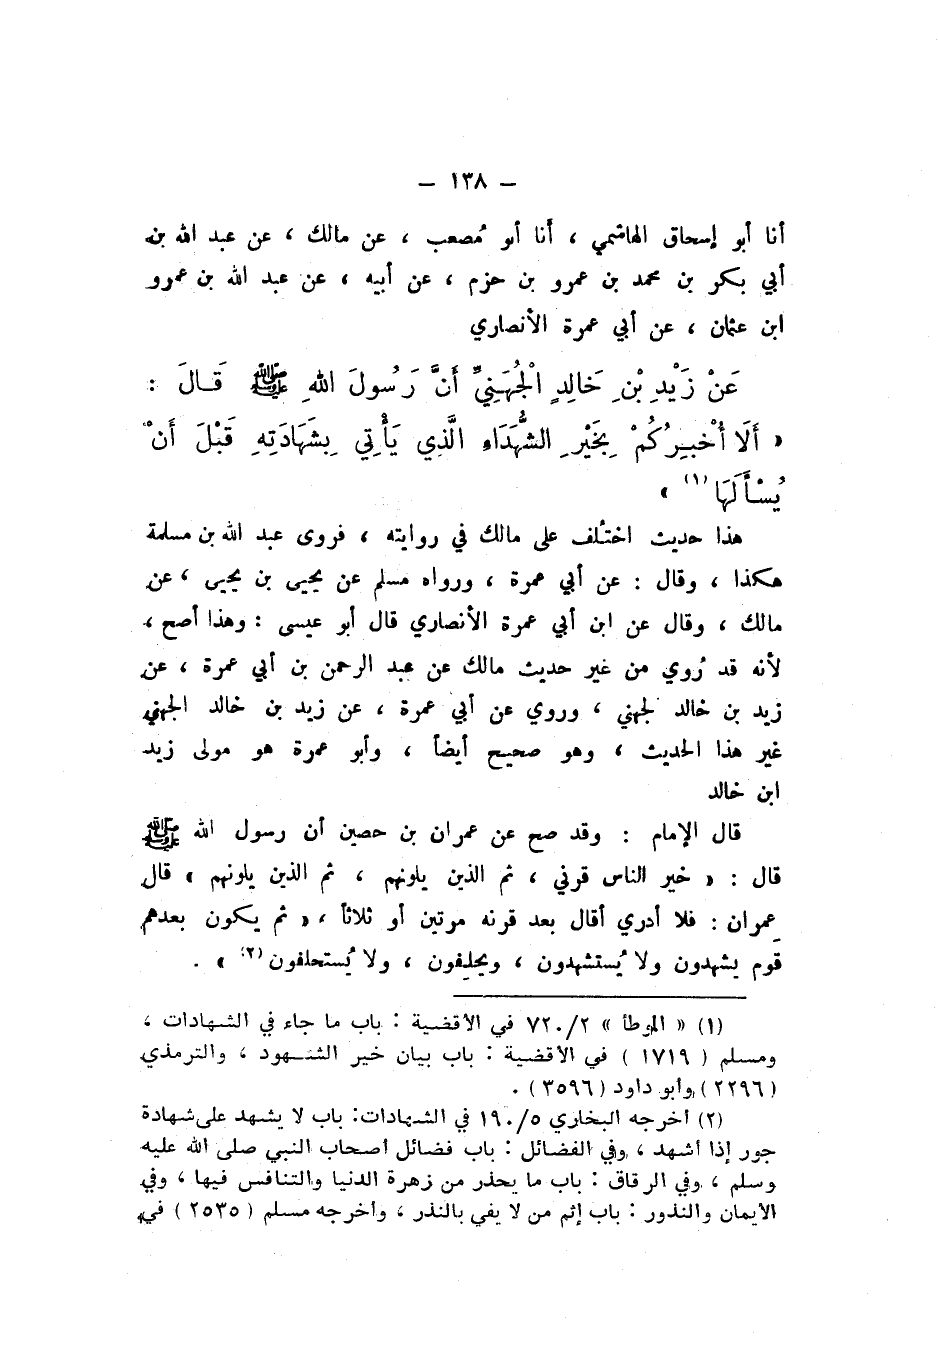 — ١٣٨ —
أنا أبو إسحاق الهاشمي ، أنا أبو مُصعب ، عن مالك ، عن عبد الله بن
أبي بكر بن محمد بن عمرو بن حزم ، عن أبيه ، عن عبد الله بن عمرو
ابن عثمان ، عن أبي عمرة الأنصاري
عَنْ زَيْدِ بْنِ خَالِدٍ الْجُهَنِيِّ أَنَّ رَسُولَ اللهِ ﷺ قَـالَ :
« أَلَا أُخْبِرُكُمْ بِخَيْرِ الشُّهَدَاءِ الَّذِي يَأْتِي بِشَهَادَتِهِ قَبْلَ أَنْ
يُسْأَلَهَا (١) »
هذا حديث اختُلف على مالك في روايته ، فروى عبد الله بن مسلمة
هكذا ، وقال : عن أبي عمرة ، ورواه مسلم عن يحيى بن يحيى ، عن
مالك ، وقال عن ابن أبي عمرة الأنصاري قال أبو عيسى : وهذا أصح ،
لأنه قد رُوي من غير حديث مالك عن عبد الرحمن بن أبي عمرة ، عن
زيد بن خالد لجهني ، وروي عن أبي عمرة ، عن زيد بن خالد الجهني
غير هذا الحديث ، وهو صحيح أيضاً ، وأبو عمرة هو مولى زيد
ابن خالد
قال الإمام : وقد صح عن عمران بن حصين أن رسول الله ﷺ
قال : « خير الناس قرني ، ثم الذين يلونهم ، ثم الذين يلونهم » قال
عمران : فلا أدري أقال بعد قرنه مرتين أو ثلاثاً ، « ثم يكون بعدهم
قوم يشهدون ولا يُستشهدون ، ويحلِفون ، ولا يُستحلفون (٢) » .
(١) « الموطأ » ٧٢٠/٢ في الأقضية : باب ما جاء في الشهادات ،
ومسلم ( ١٧١٩ ) في الأقضية : باب بيان خير الشهود ، والترمذي
(٢٢٩٦) وأبو داود (٣٥٩٦) .
(٢) أخرجه البخاري ١٩٠/٥ في الشهادات: باب لا يشهد على شهادة
جور إذا أشهد ، وفي الفضائل : باب فضائل أصحاب النبي صلى الله عليه
وسلم ، وفي الرقاق : باب ما يحذر من زهرة الدنيا والتنافس فيها ، وفي
الايمان والنذور : باب إثم من لا يفي بالنذر ، وأخرجه مسلم ( ٢٥٣٥ ) في